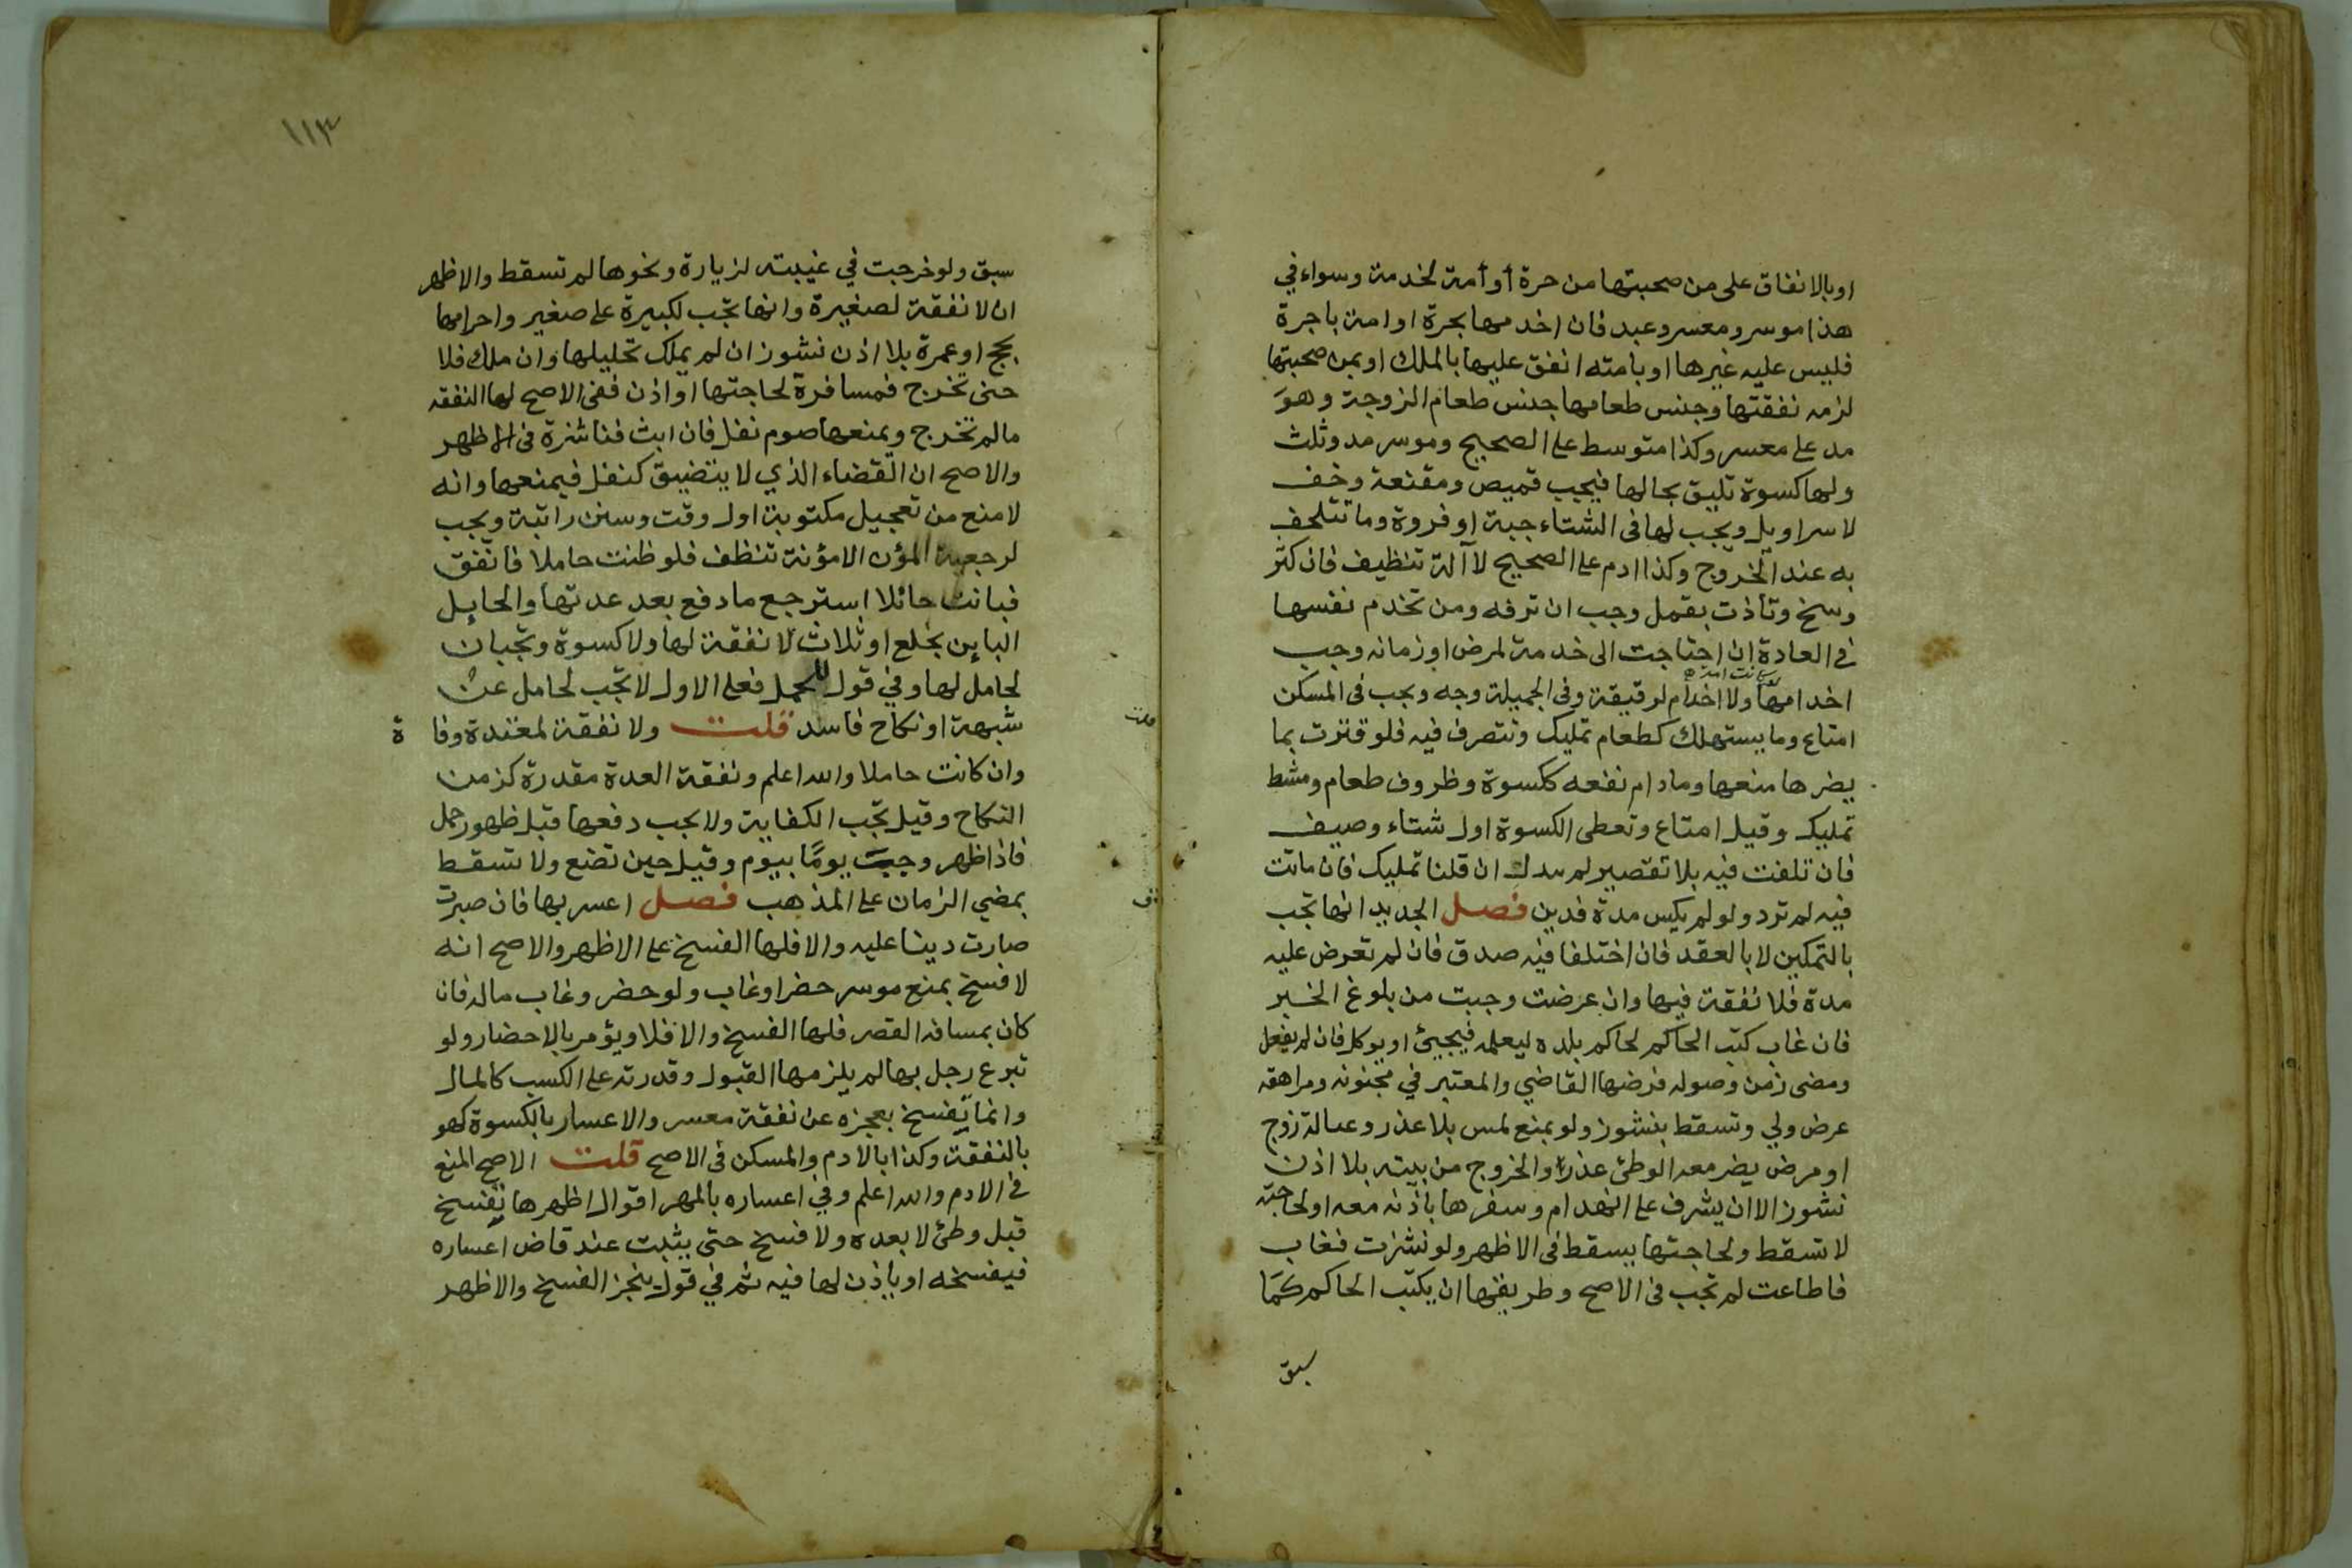 او بالانفاق على من صحبتها من حرة أو أمة لخدمة وسواء في
هذا موسر ومعسر وعبد فان اخدمها بحرة او امة باجرة
فليس عليه غيرها او بامته انفق عليها بالملك او بمن صحبتها
لزمه نفقتها وجنس طعامها جنس طعام الزوجة وهو
مد على معسر وكذا متوسط على الصحيح وموسر مد وثلث
ولها كسوة تليق بحالها فيجب قميص ومقنعة وخف
لا سراويل ويجب لها في الشتاء جبة او فروة وما تتلحف
به عند الخروج وكذا ادم على الصحيح لا آلة تنظيف فان كثر
وسخ وتأذت بقمل وجب ان ترفه ومن تخدم نفسها
في العادة ان احتاجت الى خدمة لمرض او زمانه وجب
اخدامها ولا اخدام لرقيقة وفي الجميلة وجه ويجب في المسكن
امتاع وما يستهلك كطعام تمليك وتتصرف فيه فلو قترت بما
يضرها منعها وما دام نفعه ككسوة وظروف طعام ومشط
تمليك وقيل امتاع وتعطى الكسوة اول شتاء وصيف
فان تلفت فيه بلا تقصير لم تبدل ان قلنا تمليك فان ماتت
فيه لم ترد ولو لم يكس مدة فدين فصل الجديد انها تجب
بالتمكين لا بالعقد فان اختلفا فيه صدق فان لم تعرض عليه
مدة فلا نفقة فيها وان عرضت وجبت من بلوغ الخبر
فان غاب كتب الحاكم لحاكم بلده ليعلمه فيجيئ او يوكل فان لم يفعل
ومضى زمن وصوله فرضها القاضي والمعتبر في مجنونه ومراهقه
عرض ولي وتسقط بنشوز ولو بمنع لمس بلا عذر وعبالة زوج
او مرض يضر معه الوطئ عذر والخروج من بيته بلا اذن
نشوز الا ان يشرف على انهدام وسفرها باذنه معه او لحاجته
لا تسقط ولحاجتها يسقط في الاظهر ولو نشزت فغاب
فاطاعت لم تجب في الاصح وطريقها ان يكتب الحاكم كما
سبق
١١٣
سبق ولو خرجت في غيبته لزيارة ونحوها لم تسقط والاظهر
ان لا نفقة لصغيرة وانها تجب لكبيرة على صغير واحرامها
بحج او عمرة بلا اذن نشوز ان لم يملك تحليلها وان ملك فلا
حتى تخرج فمسافرة لحاجتها او اذن ففي الاصح لها النفقه
ما لم تخرج ويمنعها صوم نفل فان ابت فناشزة في الاظهر
والاصح ان القضاء الذي لا يتضيق كنفل فيمنعها وانه
لا منع من تعجيل مكتوبة اول وقت وسنن راتبة ويجب
لرجعية المؤن الا مؤنة تنظف فلو ظنت حاملا فانفق
فبانت حائلا استرجع ما دفع بعد عدتها والحايل
الباين بخلع او ثلاث لا نفقة لها ولا كسوة وتجبان
لحامل لها وفي قول للحمل فعلى الاول لا تجب لحامل عن
شبهة او نكاح فاسد قلت ولا نفقة لمعتدة وفا ة
وان كانت حاملا والله اعلم ونفقة العدة مقدرة كزمن
النكاح وقيل تجب الكفاية ولا يجب دفعها قبل ظهور حمل
فاذا ظهر وجبت يوما بيوم وقيل حين تضع ولا تسقط
بمضي الزمان على المذهب فصل اعسر بها فان صبرت
صارت دينا عليه والا فلها الفسخ على الاظهر والاصح انه
لا فسخ بمنع موسر حضر او غاب ولو حضر وغاب ماله فان
كان بمسافة القصر فلها الفسخ والا فلا ويؤمر بالاحضار ولو
تبرع رجل بها لم يلزمها القبول وقدرته على الكسب كالمال
وانما يفسخ بعجزه عن نفقة معسر والاعسار بالكسوة كهو
بالنفقة وكذا بالادم والمسكن في الاصح قلت الاصح المنع
في الادم والله اعلم وفي اعساره بالمهر اقوال اظهرها تفسخ
قبل وطئ لا بعده ولا فسخ حتى يثبت عند قاض اعساره
فيفسخه او ياذن لها فيه ثم في قول ينجز الفسخ والاظهر